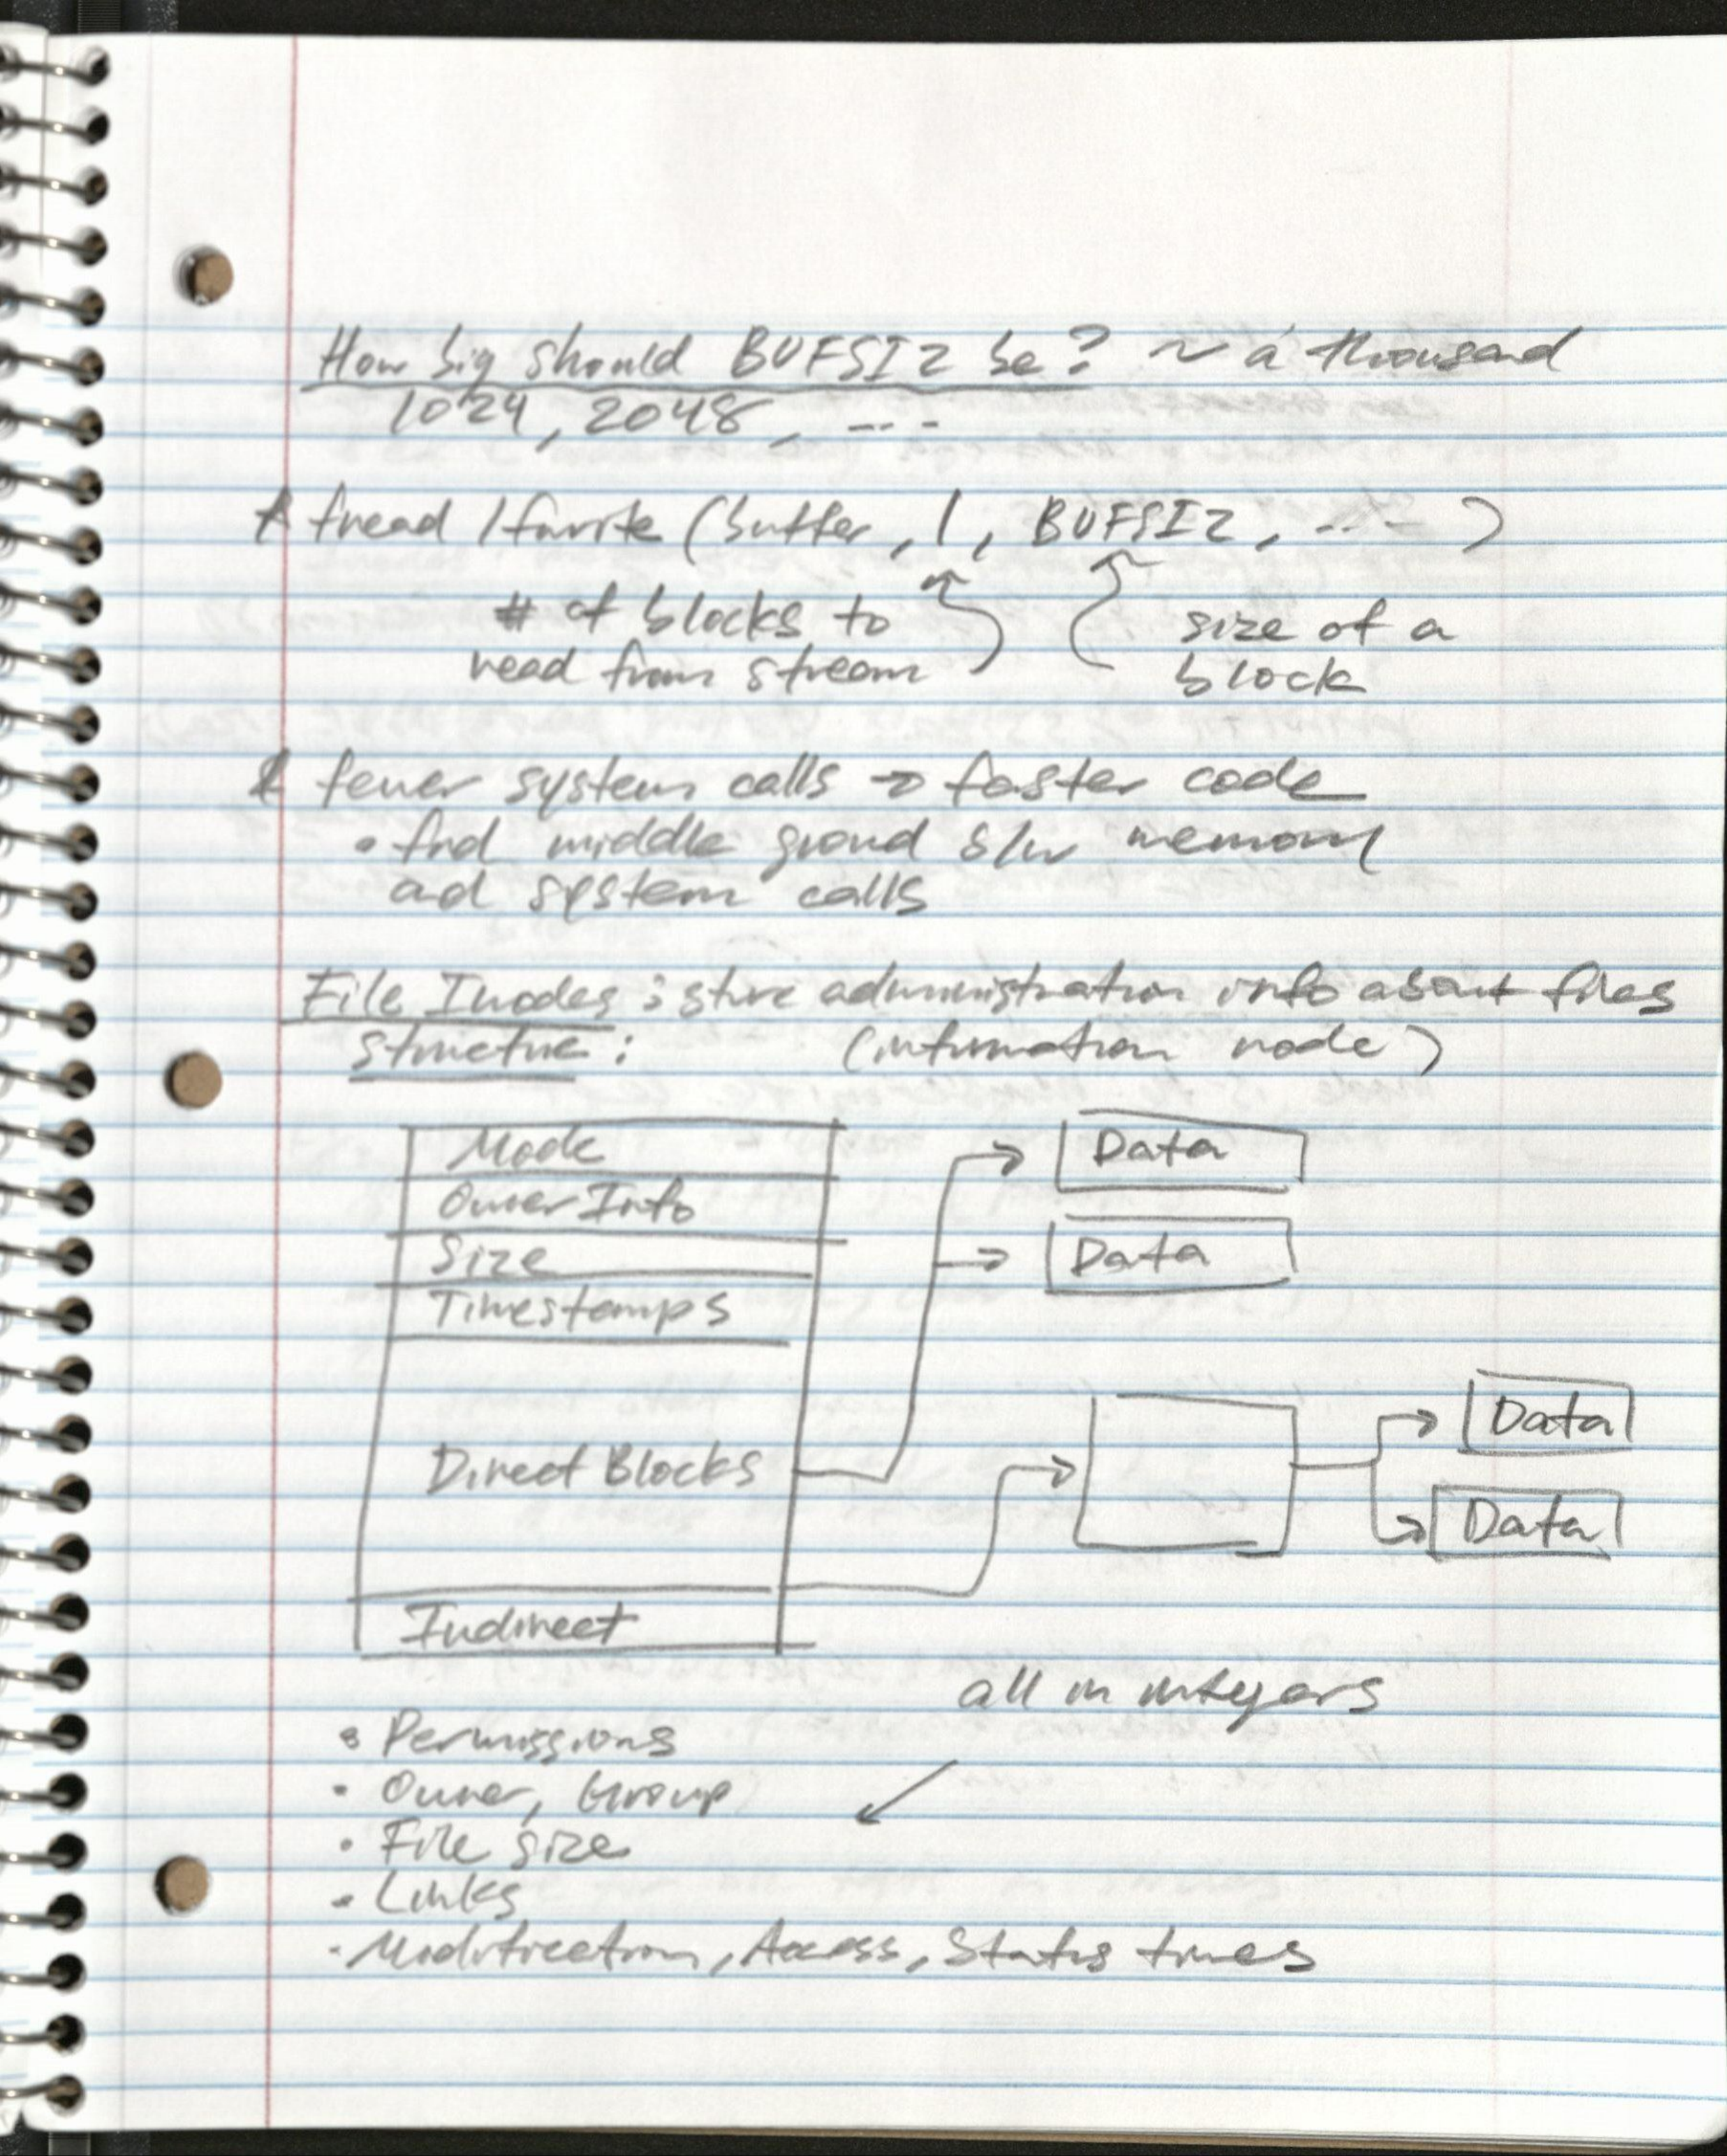 How big should BUFSIZ be? ~ a thousand
1024, 2048, ...
* fread / fwrite (buffer, 1, BUFSIZ, ... )
# of blocks to
read from stream
size of a
block
* fewer system calls → faster code
• find middle ground b/w memory
and system calls
File Inodes: store administration info about files
structure: (information node)
Mode
Owner Info
Size
Timestamps
Direct Blocks
Indirect
Data
Data
Data
Data
all in integers
• Permissions
• Owner, Group
• File size
• Links
• Modification, Access, Status times